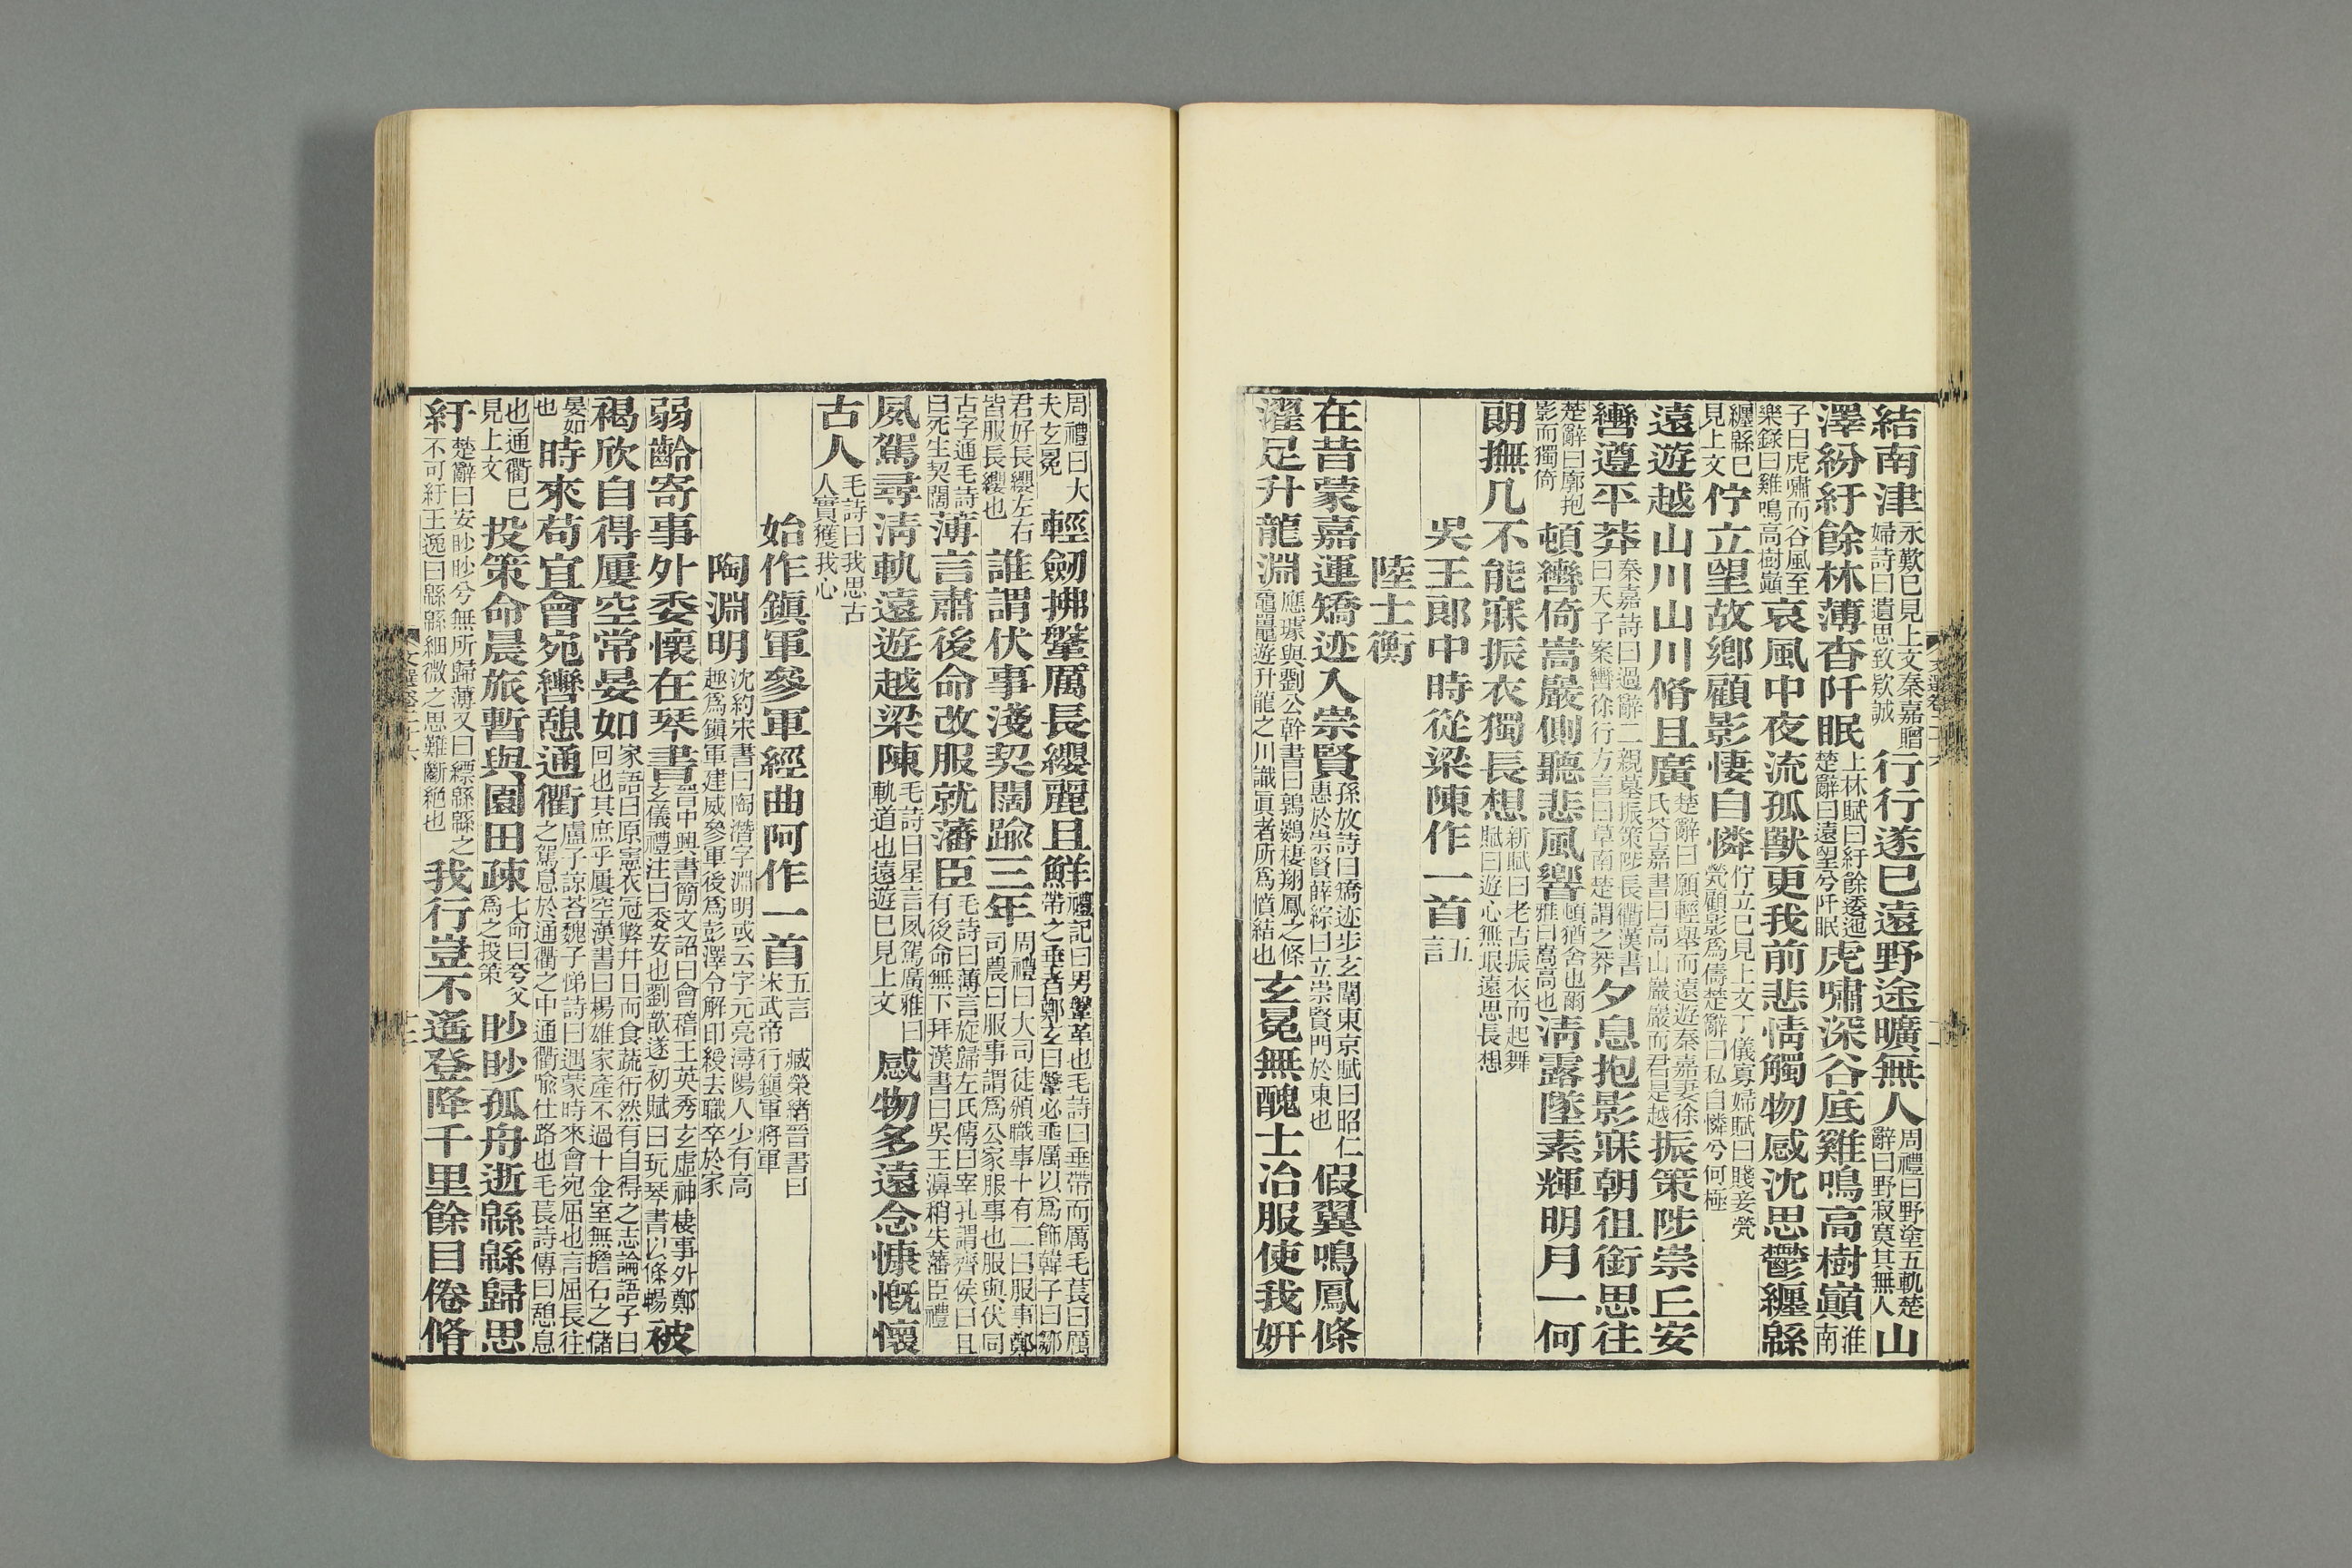 結南津永歎已見上文秦嘉贈婦詩曰遺思致款誠行行遂已遠野途曠無人周禮曰野塗五軌楚辭曰野寂寞其無人山
澤紛紆餘林薄杳阡眠上林賦曰紆餘逶迤楚辭曰遠望兮阡眠虎嘯深谷底雞鳴高樹巔淮南
子曰虎嘯而谷風至樂錄曰雞鳴高樹巔哀風中夜流孤獸更我前悲情觸物感沈思鬱纏緜
纏緜已見上文佇立望故鄉顧影悽自憐佇立已見上文丁儀寡婦賦曰賤妾煢煢顧影爲儔楚辭曰私自憐兮何極
遠遊越山川山川脩且廣楚辭曰願輕舉而遠遊秦嘉妻徐氏荅嘉書曰高山巖巖而君是越振策陟崇丘安
轡遵平莽秦嘉詩曰過辭二親墓振策陟長衢漢書曰天子案轡徐行方言曰草南楚謂之莽夕息抱影寐朝徂銜思往
楚辭曰廓抱影而獨倚頓轡倚嵩巖側聽悲風響頓猶舍也爾雅曰嵩高也淸露墜素輝明月一何
朗撫几不能寐振衣獨長想新賦曰老古振衣而起舞賦曰遊心無垠遠思長想
吳王郎中時從梁陳作一首五言
陸士衡
在昔蒙嘉運矯迹入崇賢孫放詩曰矯迹步玄闈東京賦曰昭仁惠於崇賢薛綜曰立崇賢門於東也假翼鳴鳳條
濯足升龍淵應璩與劉公幹書曰鶉鷃棲翔鳳之條黿鼉遊升龍之川識眞者所爲憤結也玄冕無醜士冶服使我妍
周禮曰大夫玄冕輕劒拂鞶厲長纓麗且鮮禮記曰男鞶革也毛詩曰垂帶而厲毛萇曰厲帶之垂者鄭玄曰鞶必垂厲以爲飾韓子曰鄒
君好長纓左右皆服長纓也誰謂伏事淺契闊踰三年周禮曰大司徒頒職事十有二曰服事鄭司農曰服事謂爲公家服事也服與伏同
古字通毛詩曰死生契闊薄言肅後命改服就藩臣毛詩曰薄言旋歸左氏傳曰宰孔謂齊侯曰且有後命無下拜漢書曰吳王濞稍失藩臣禮
夙駕尋淸軌遠遊越梁陳毛詩曰星言夙駕廣雅曰軌道也遠遊已見上文感物多遠念慷慨懷
古人毛詩曰我思古人實獲我心
始作鎭軍參軍經曲阿作一首五言臧榮緒晉書曰宋武帝行鎭軍將軍
陶淵明沈約宋書曰陶潛字淵明或云字元亮潯陽人少有高趣爲鎭軍建威參軍後爲彭澤令解印綬去職卒於家
弱齡寄事外委懷在琴書晉中興書簡文詔曰會稽王英秀玄虛神棲事外鄭玄儀禮注曰委安也劉歆遂初賦曰玩琴書以條暢被
褐欣自得屢空常晏如家語曰原憲衣冠弊幷日而食蔬衎然有自得之志論語子曰回也其庶乎屢空漢書曰楊雄家產不過十金室無擔石之儲
晏如也時來苟宜會宛轡憩通衢盧子諒荅魏子悌詩曰遇蒙時來會宛屈也言屈長往之駕息於通衢之中通衢喩仕路也毛萇詩傳曰憩息
也通衢已見上文投策命晨旅暫與園田疎七命曰夸父爲之投策眇眇孤舟逝緜緜歸思
紆楚辭曰安眇眇兮無所歸薄又曰縹緜緜之不可紆王逸曰緜緜細微之思難斷絶也我行豈不遙登降千里餘目倦脩